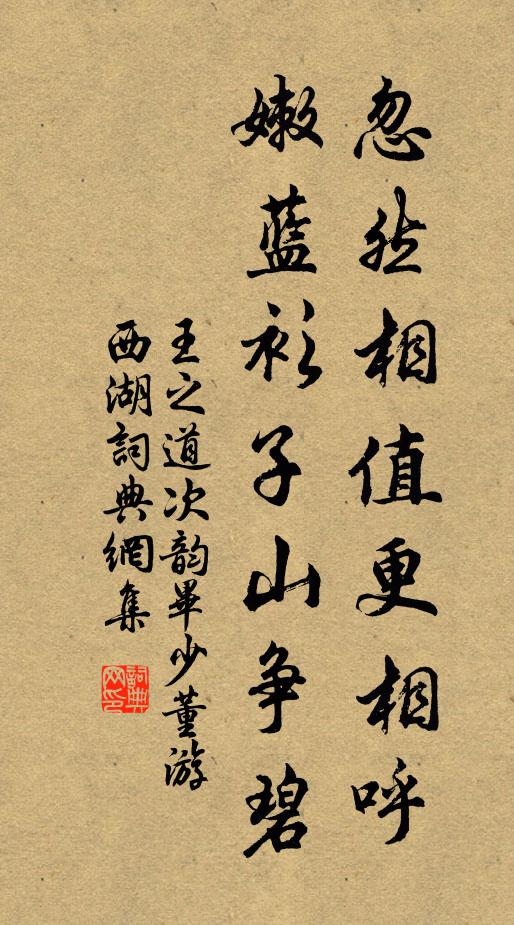 忽然相值更相呼
嫩藍衫子山争碧
王之道次韵畢少董游
西湖詞典網集
詞典
网印